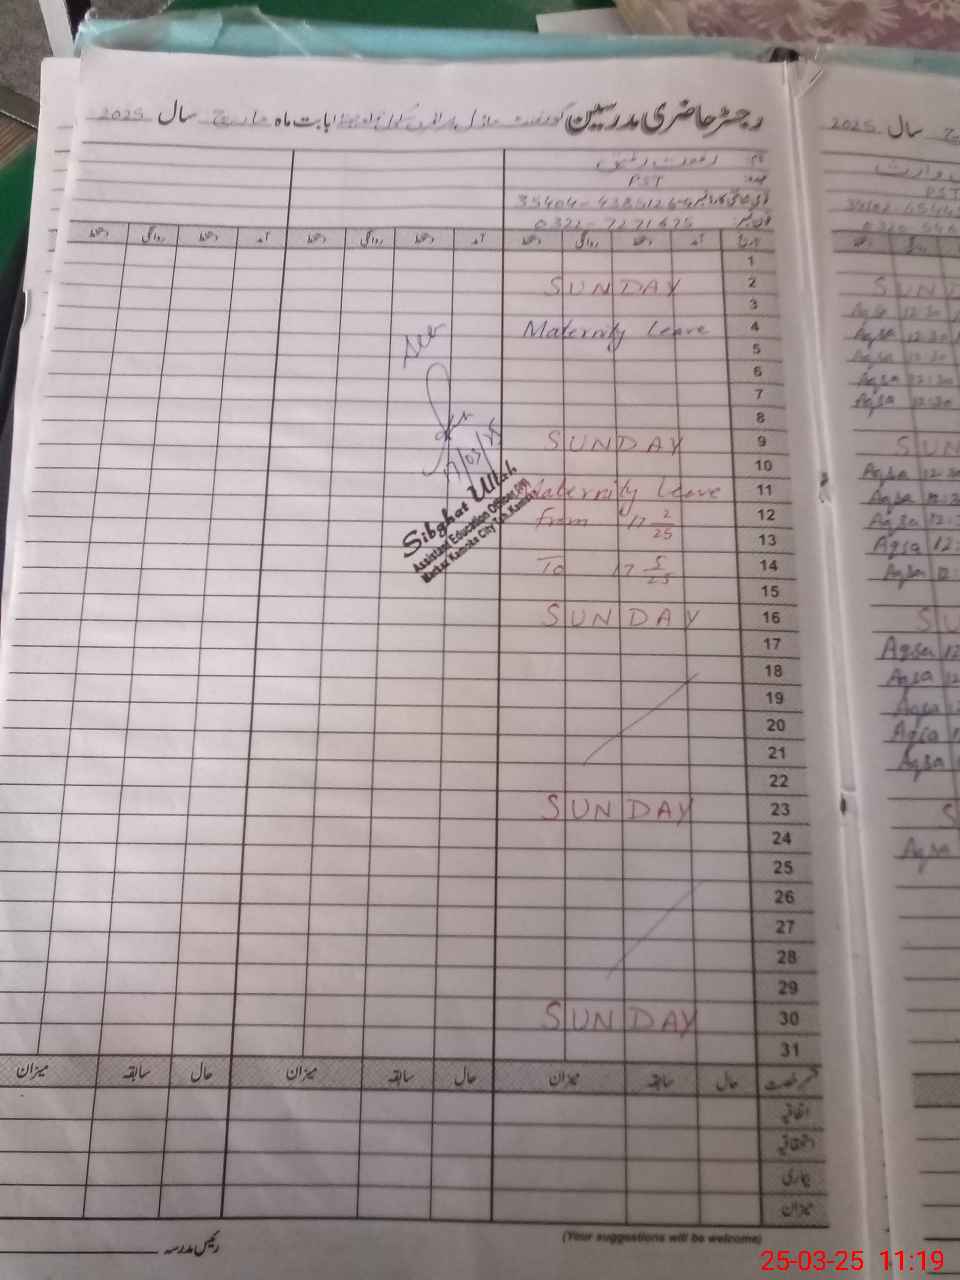 رجسٹر حاضری مدرسین گورنمنٹ ماڈل پرائمری سکول بابت ماہ مارچ سال 2025
نام:
عہدہ: PST
قومی شناختی کارڈ نمبر 35404-
فون نمبر: 0322-7271675
تاریخ آمد دستخط روانگی دستخط آمد دستخط روانگی دستخط آمد دستخط روانگی دستخط
1
2 SUNDAY
3
4 Maternity Leave
5
6
7
8
9 SUNDAY
10
11 Maternity Leave
12 From 17 2/25
13
14 To 17 5/25
15
16 SUNDAY
17
18
19
20
21
22
23 SUNDAY
24
25
26
27
28
29
30 SUNDAY
31
قسم رخصت حال سابقہ میزان حال سابقہ میزان حال سابقہ میزان
اتفاقیہ
استحقاقیہ
بیماری
میزان
رئیس مدرسہ
(Your suggestions will be welcome)
See
17/03/25
Sibghat Ullah
Assistant Education Officer (M)
Markaz Kamoke City Teh. Kamoke
سال 2025
PST
SUND
Aqsa 12:30
Aqsa 12:30
Aqsa 12:30
Aqsa 12:30
Aqsa 12:30
SUN
Aqsa 12:30
Aqsa
Aqsa 12:
Aqsa 12:
Aqsa 12:
SU
Aqsa 12
Aqsa 12
Aqsa
Aqsa
Aqsa
S
Aqsa
25-03-25 11:19